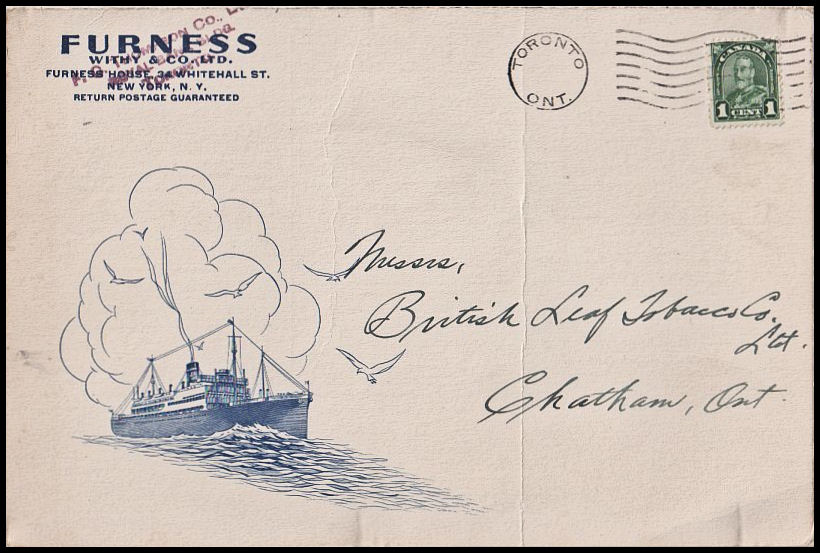 FURNESS
WITHY & CO. LTD.
FURNESS HOUSE, 34 WHITEHALL ST.
NEW YORK, N. Y.
RETURN POSTAGE GUARANTEED
CO., L
ROYAL BANK BLDG.
TORONTO
TORONTO
ONT.
CANADA
1 CENT 1
Messrs,
British Leaf Tobacco Co.
Ltd.
Chatham, Ont.